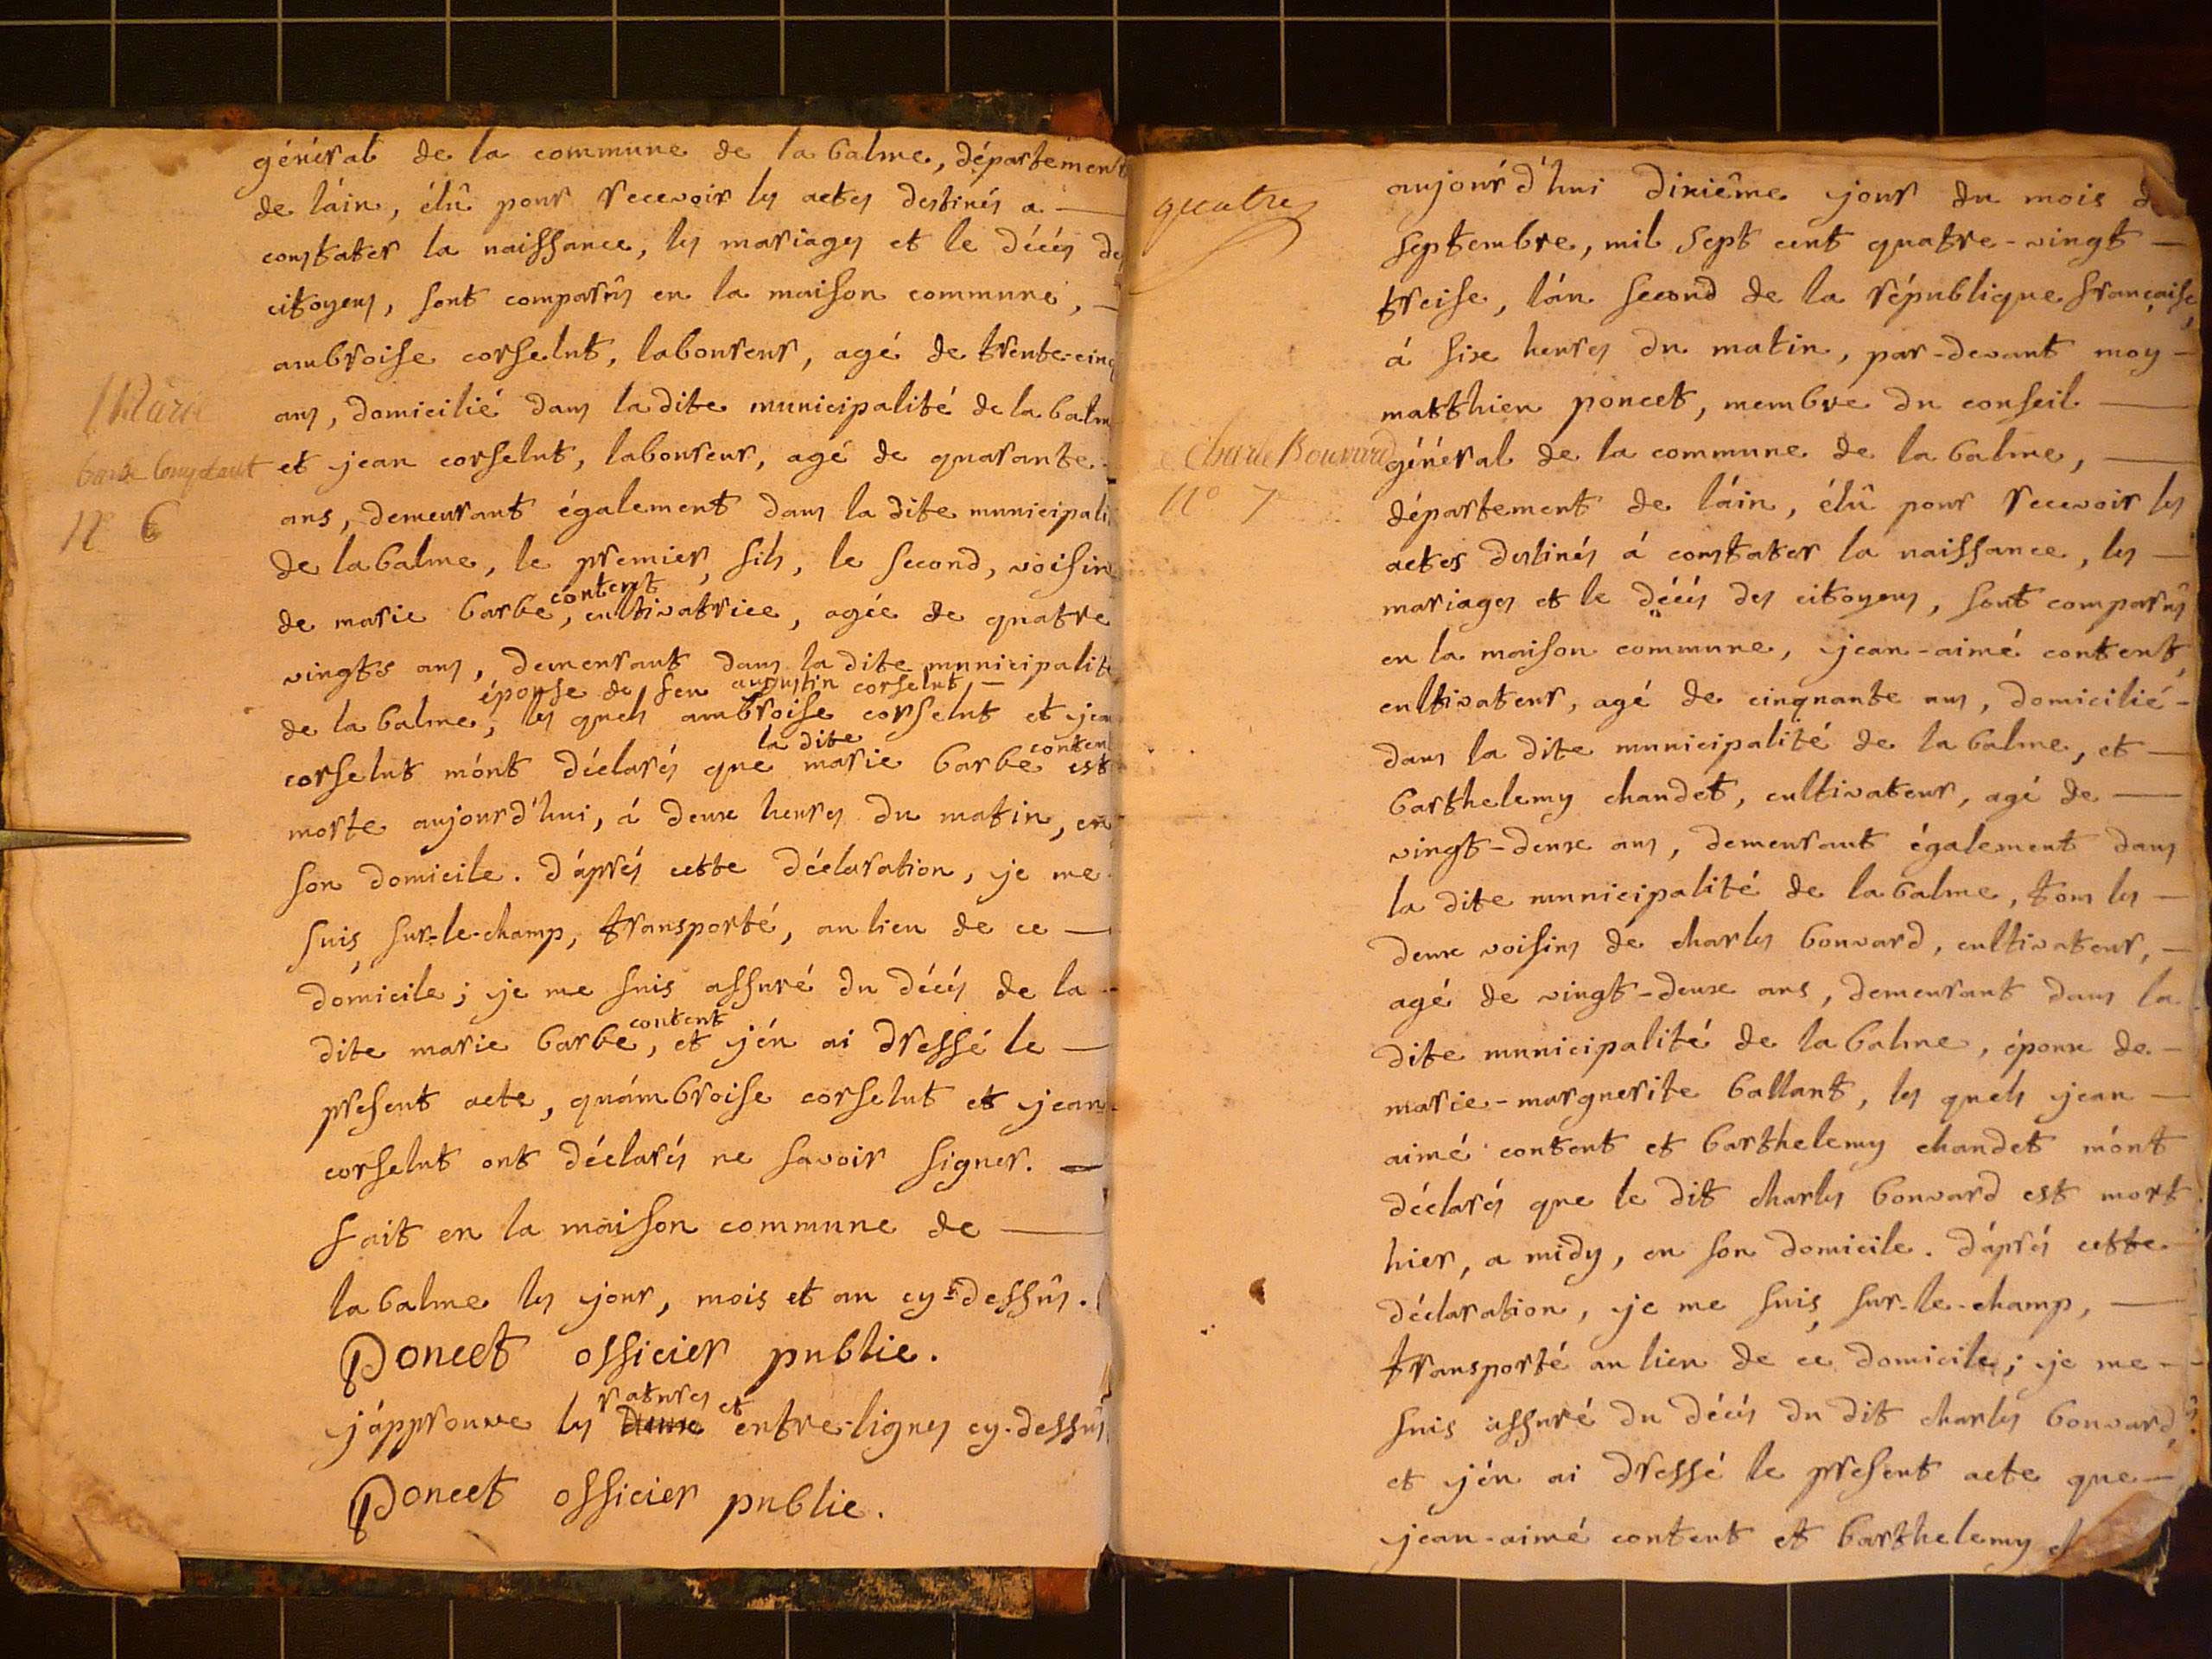 général de la commune de la balme, département
de láin, élû pour recevoir les actes destinés a
constater la naissance, les mariages et le décés des
citoyens, sont comparûs en la maison commune,
ambroise corselut, laboureur, agé de trente-cinq
ans, domicilié dans la dite municipalité de la balme
et jean corselut, laboureur, agé de quarante
ans, demeurant également dans la dite municipali
de la balme, le premier, fils, le second, voisin
content
de marie barbe, cultivatrice, agée de quatre
vingts ans, demeurant dans la dite municipalité
épouse de feu augustin corselut
de la balme, les quels ambroise corselut et jean
la dite content
corselut mónt déclarés que marie barbe est
morte aujourd'hui, á deux heures du matin, en
son domicile. d'áprés cette déclaration, je me
suis, sur-le-champ, transporté, au lieu de ce
domicile; je me suis assuré du décés de la
content
dite marie barbe, et j'én ai dressé le
present acte, quámbroise corselut et jean
corselut ont déclarés ne savoir signer.
fait en la maison commune de
la balme les jour, mois et an cy-dessûs.
Poncet officier public.
ratures et
j'ápprouve les deux entre-lignes cy-dessûs
Poncet officier public.
Marie
barbe
N° 6
quatre
Charle Bouvard
N° 7
aujourd'hui dixiême jour du mois de
septembre, mil sept cent quatre-vingt
treise, lán second de la république française,
á six heures du matin, par-devant moy
matthieu poncet, membre du conseil
général de la commune de la balme,
département de láin, élû pour recevoir les
actes destinés á constater la naissance, les
mariages et le décés des citoyens, sont comparûs
en la maison commune, jean-aimé content,
cultivateur, agé de cinquante ans, domicilié
dans la dite municipalité de la balme, et
barthelemy chandet, cultivateur, agé de
vingt-deux ans, demeurant également dans
la dite municipalité de la balme, tous les
deux voisins de charles bouvard, cultivateur,
agé de vingt-deux ans, demeurant dans la
dite municipalité de la balme, époux de
marie-marguerite ballant, les quels jean
aimé content et barthelemy chandet mónt
déclarés que le dit charles bouvard est mort
hier, a midy, en son domicile. d'áprés cette
déclaration, je me suis, sur-le-champ,
transporté au lieu de ce domicile; je me
suis assuré du décés du dit charles bouvard,
et j'én ai dressé le present acte que
jean-aimé content et barthelemy